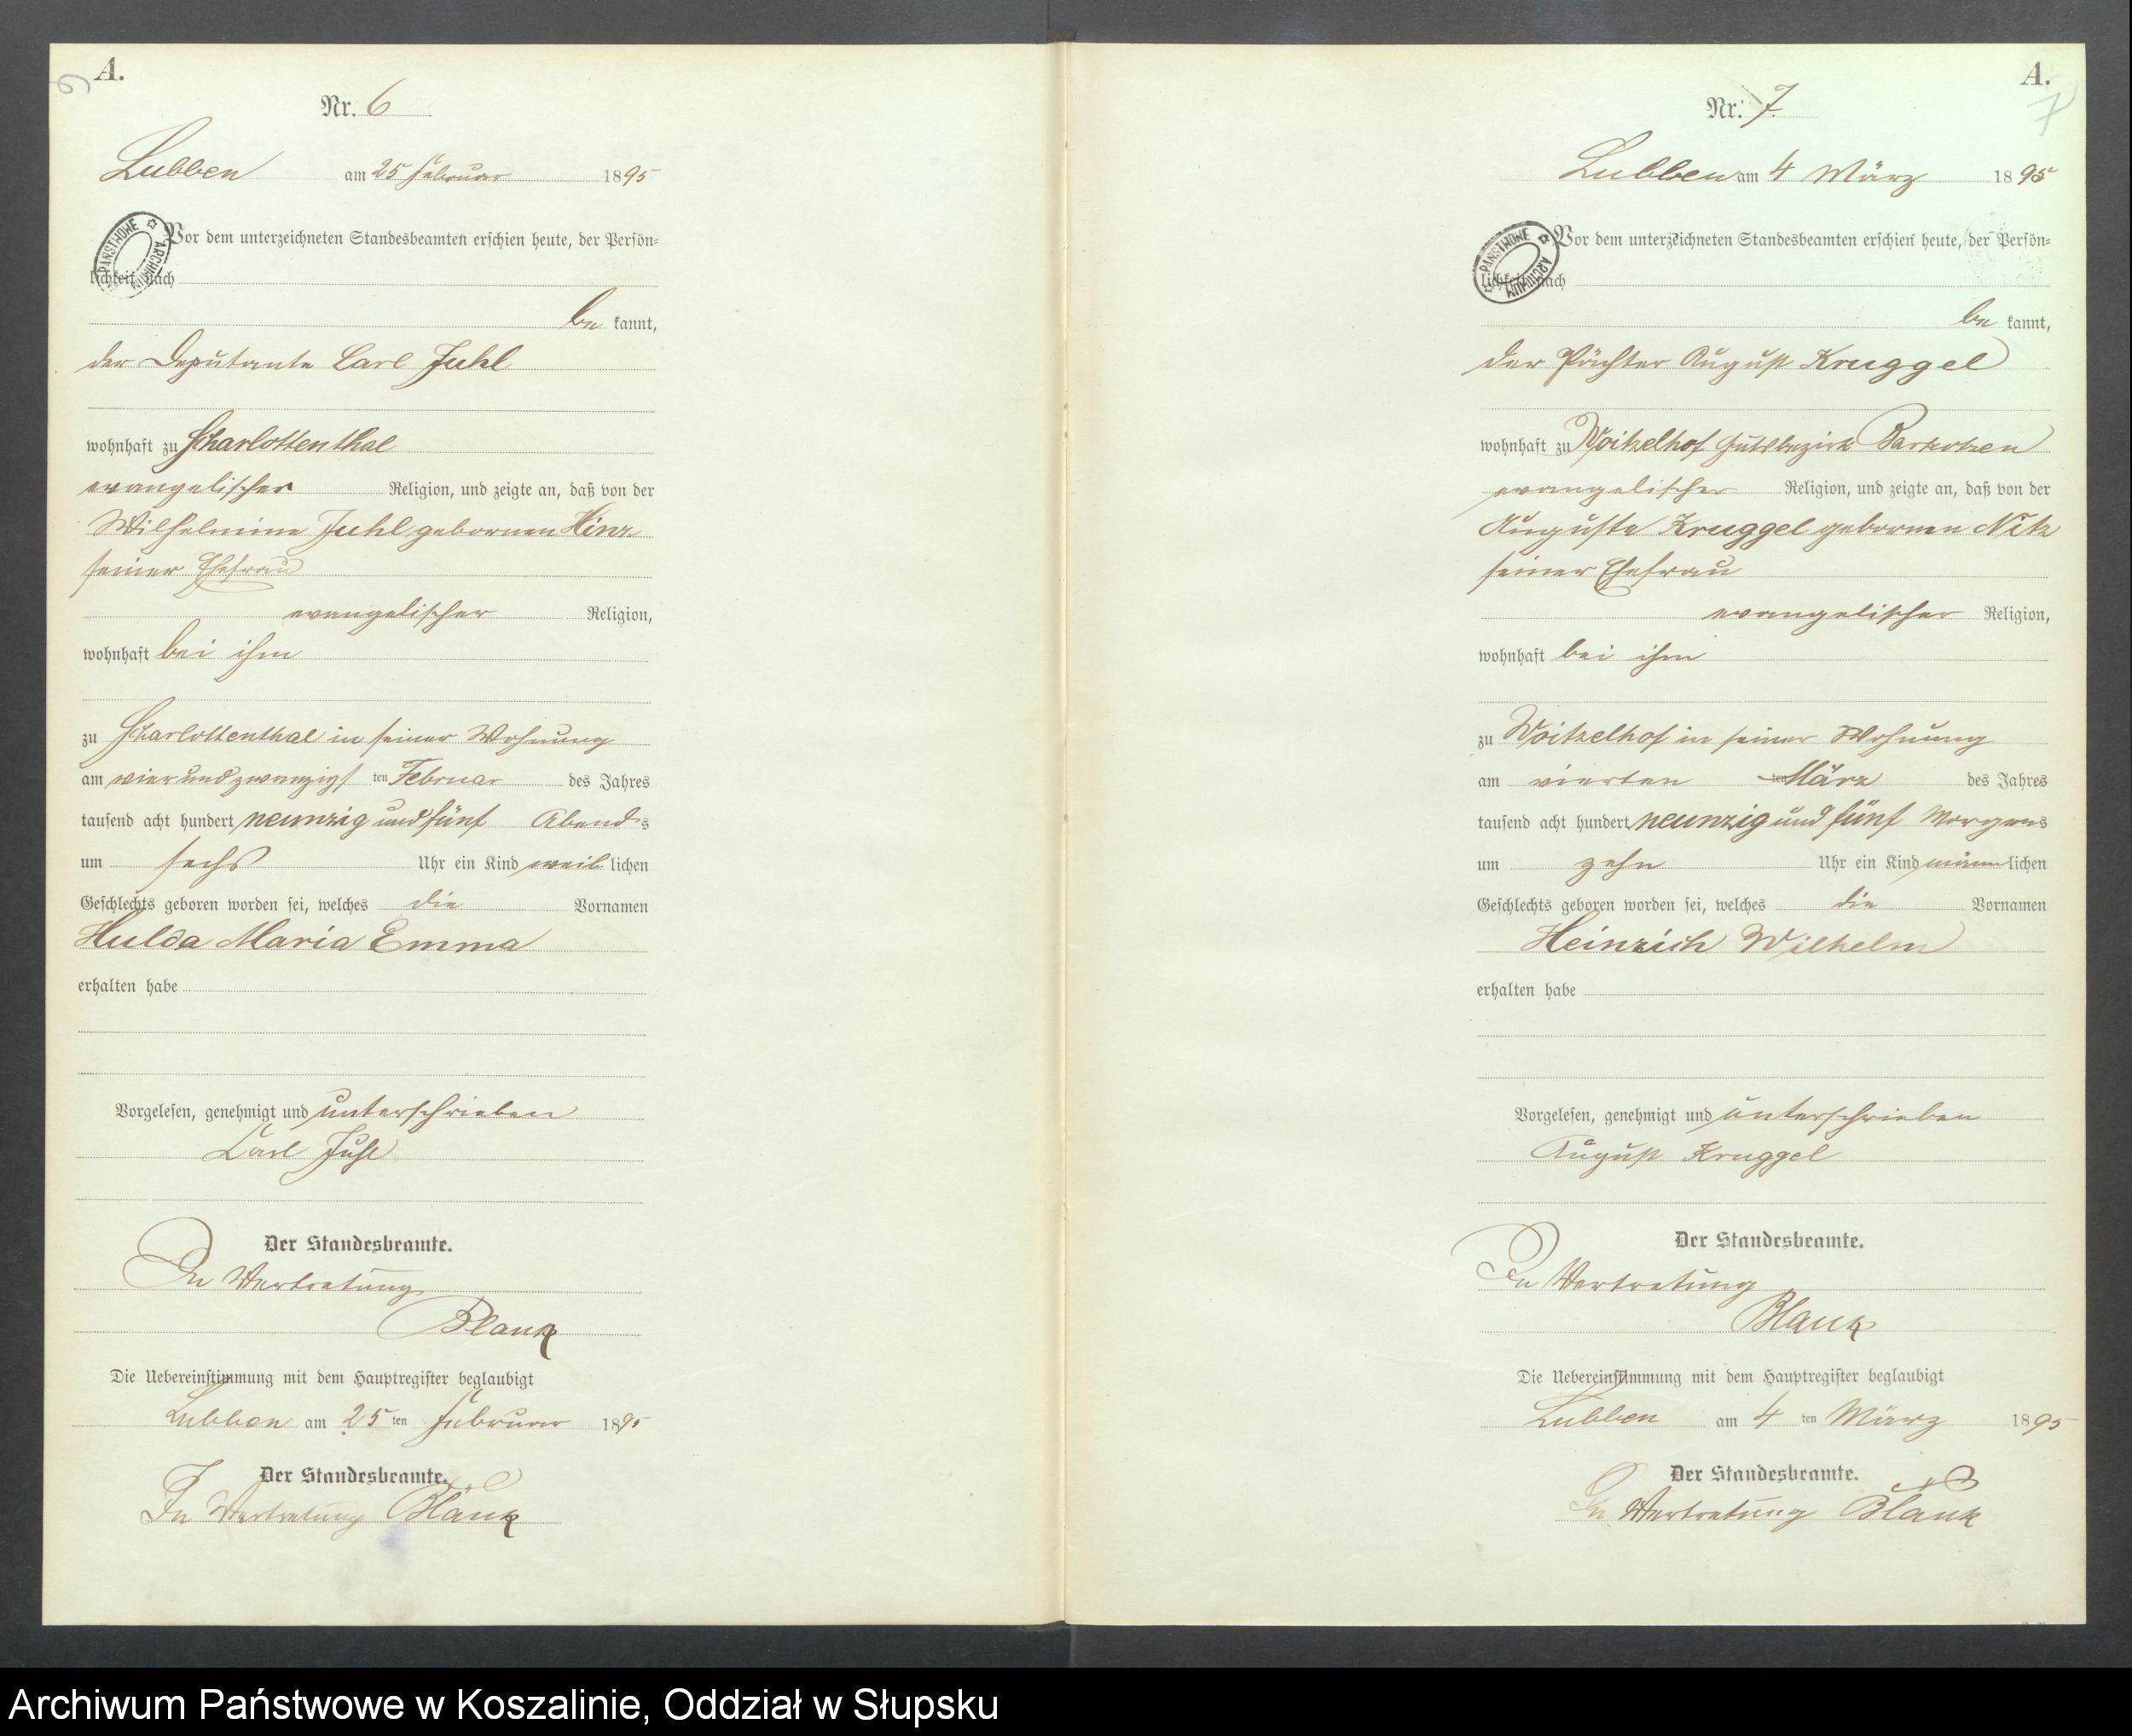 A.
6
Nr. 6
Lubben am 25 Februar 1895
Vor dem unterzeichneten Standesbeamten erschien heute, der Persön-
lichkeit nach
be kannt,
der Deputante Carl Juhl
wohnhaft zu Scharlottenthal
evangelischer Religion, und zeigte an, daß von der
Wilhelmine Juhl gebornen Hinz
seiner Ehefrau
evangelischer Religion,
wohnhaft bei ihm
zu Scharlottenthal in seiner Wohnung
am vier und zwanzigs ten Februar des Jahres
tausend acht hundert neunzig und fünf Abends
um sechs Uhr ein Kind weiblichen
Geschlechts geboren worden sei, welches die Vornamen
Hulda Maria Emma
erhalten habe
Vorgelesen, genehmigt und unterschrieben
Carl Juhl
Der Standesbeamte.
In Vertretung
Blank
Die Uebereinstimmung mit dem Hauptregister beglaubigt
Lubben am 25 ten Februar 1895
Der Standesbeamte.
In Vertretung Blank
A.
7
Nr. 7.
Lubben am 4 März 1895
Vor dem unterzeichneten Standesbeamten erschien heute, der Persön-
lichkeit nach
be kannt,
der Pächter August Kruggel
wohnhaft zu Woitzelhof Gutsbezirk Barkotzen
evangelischer Religion, und zeigte an, daß von der
Auguste Kruggel gebornen Nitz
seiner Ehefrau
evangelischer Religion,
wohnhaft bei ihm
zu Woitzelhof in seiner Wohnung
am vierten ten März des Jahres
tausend acht hundert neunzig und fünf Morgens
um zehn Uhr ein Kind männlichen
Geschlechts geboren worden sei, welches die Vornamen
Heinrich Wilhelm
erhalten habe
Vorgelesen, genehmigt und unterschrieben
August Kruggel
Der Standesbeamte.
In Vertretung
Blank
Die Uebereinstimmung mit dem Hauptregister beglaubigt
Lubben am 4 ten März 1895
Der Standesbeamte.
In Vertretung Blank
ARCHIWUM PAŃSTWOWE
ARCHIWUM PAŃSTWOWE
Archiwum Państwowe w Koszalinie, Oddział w Słupsku